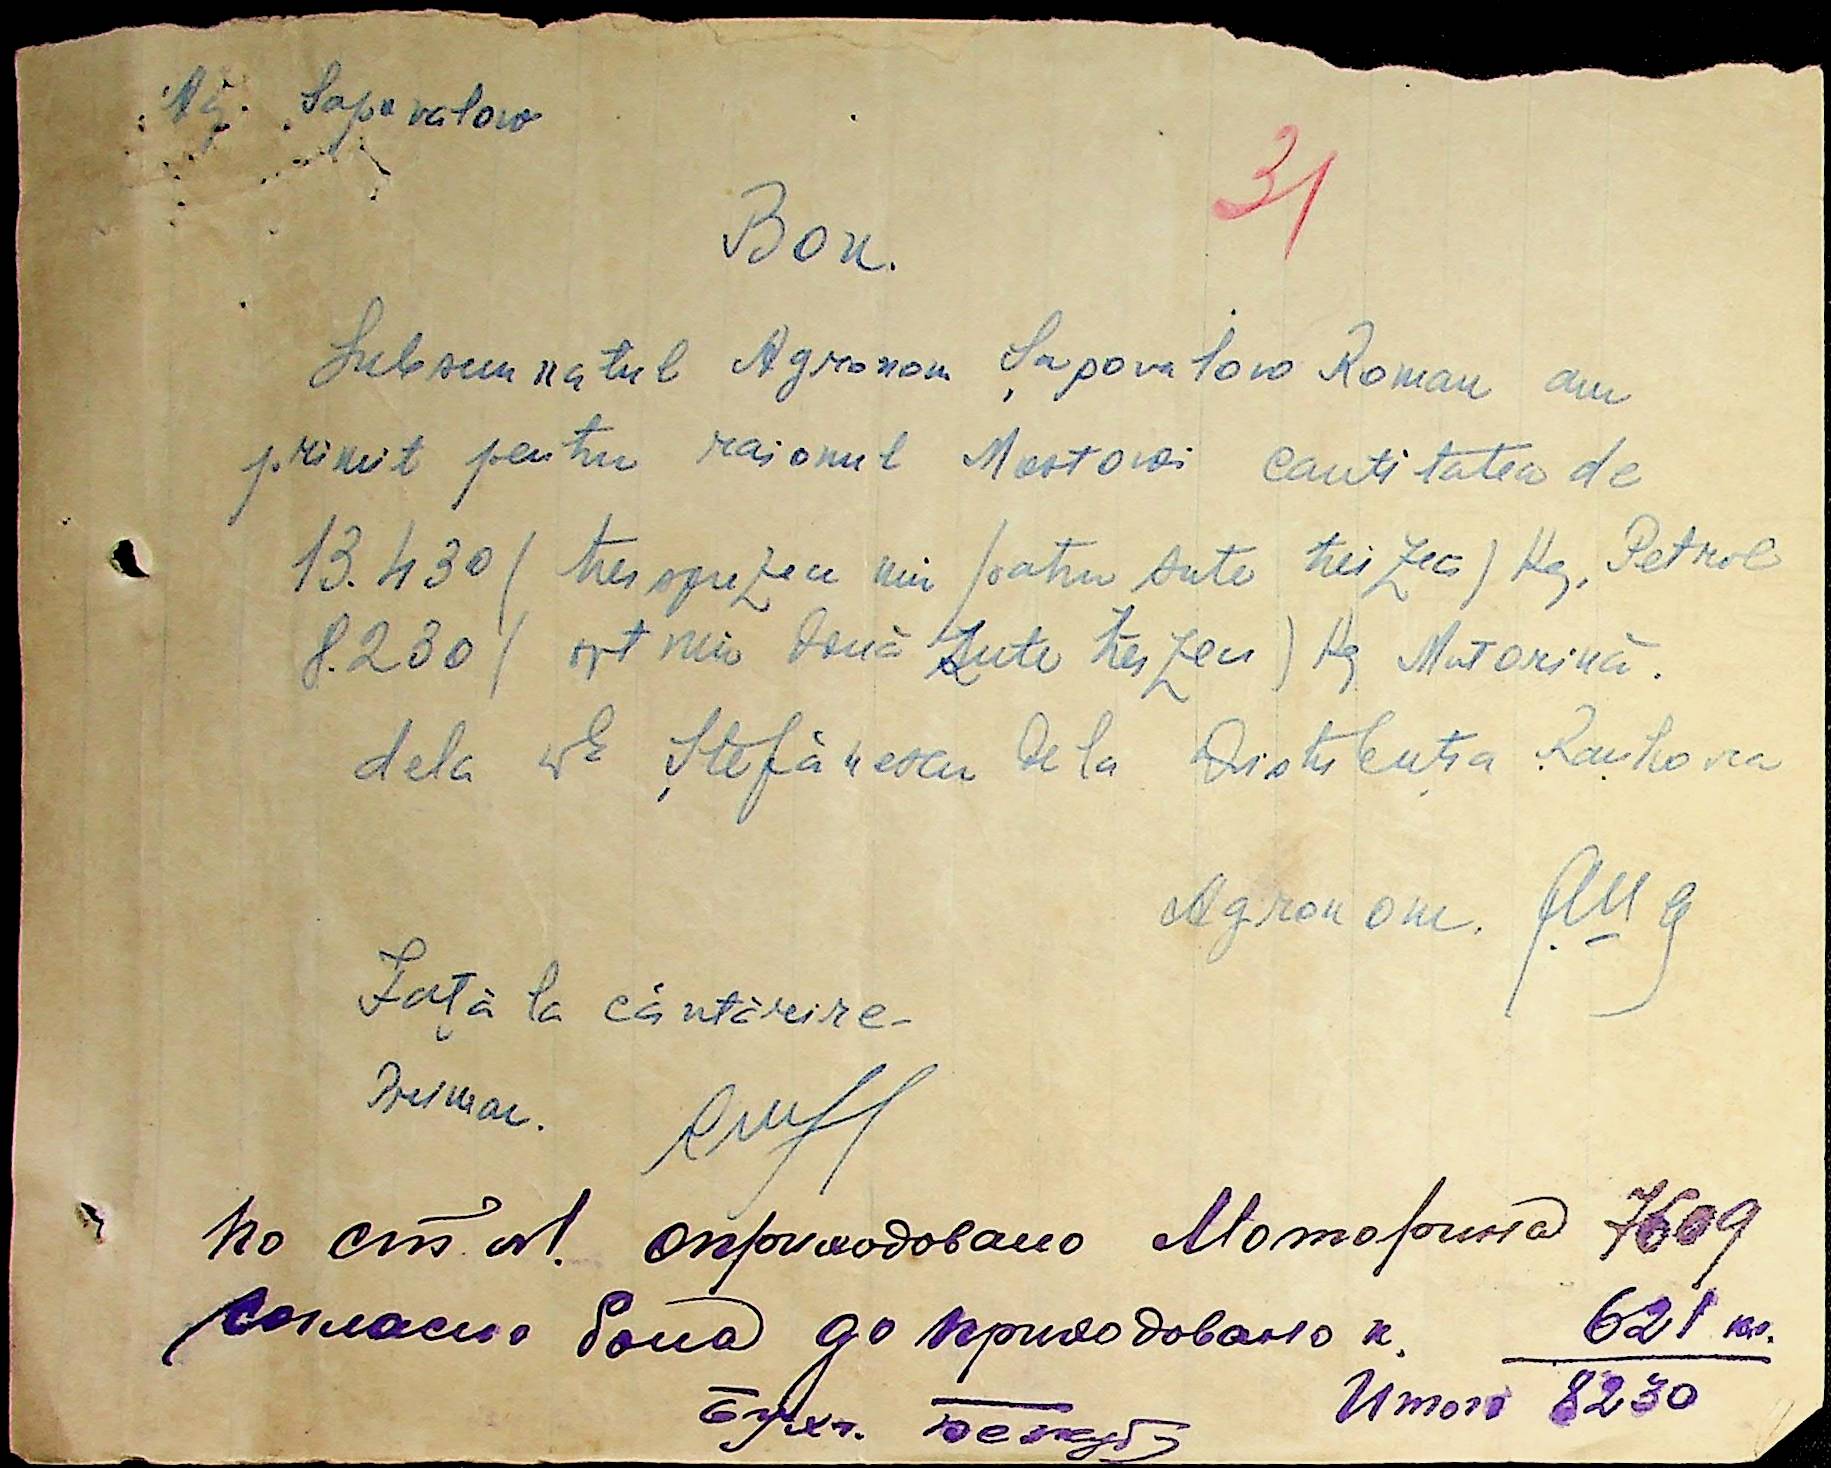 Ag. Sapovalow
31
Bon.
Subsemnatul Agronom Șapovalow Roman am
primit pentru raionul Mostowoi cantitatea de
13.430 ( treisprezeci mii patru sute treizeci ) Kg. Petrol
8.230 ( opt mii două sute treizeci ) Kg Motorină.
dela Ștefănescu de la Distribuția Rauhova
Agronom.
Față la cântărire-
Primar.
По оприходовано Моторина 7609
согласно бона до приходовано к. 621 кл.
Итого 8230
Бухг.